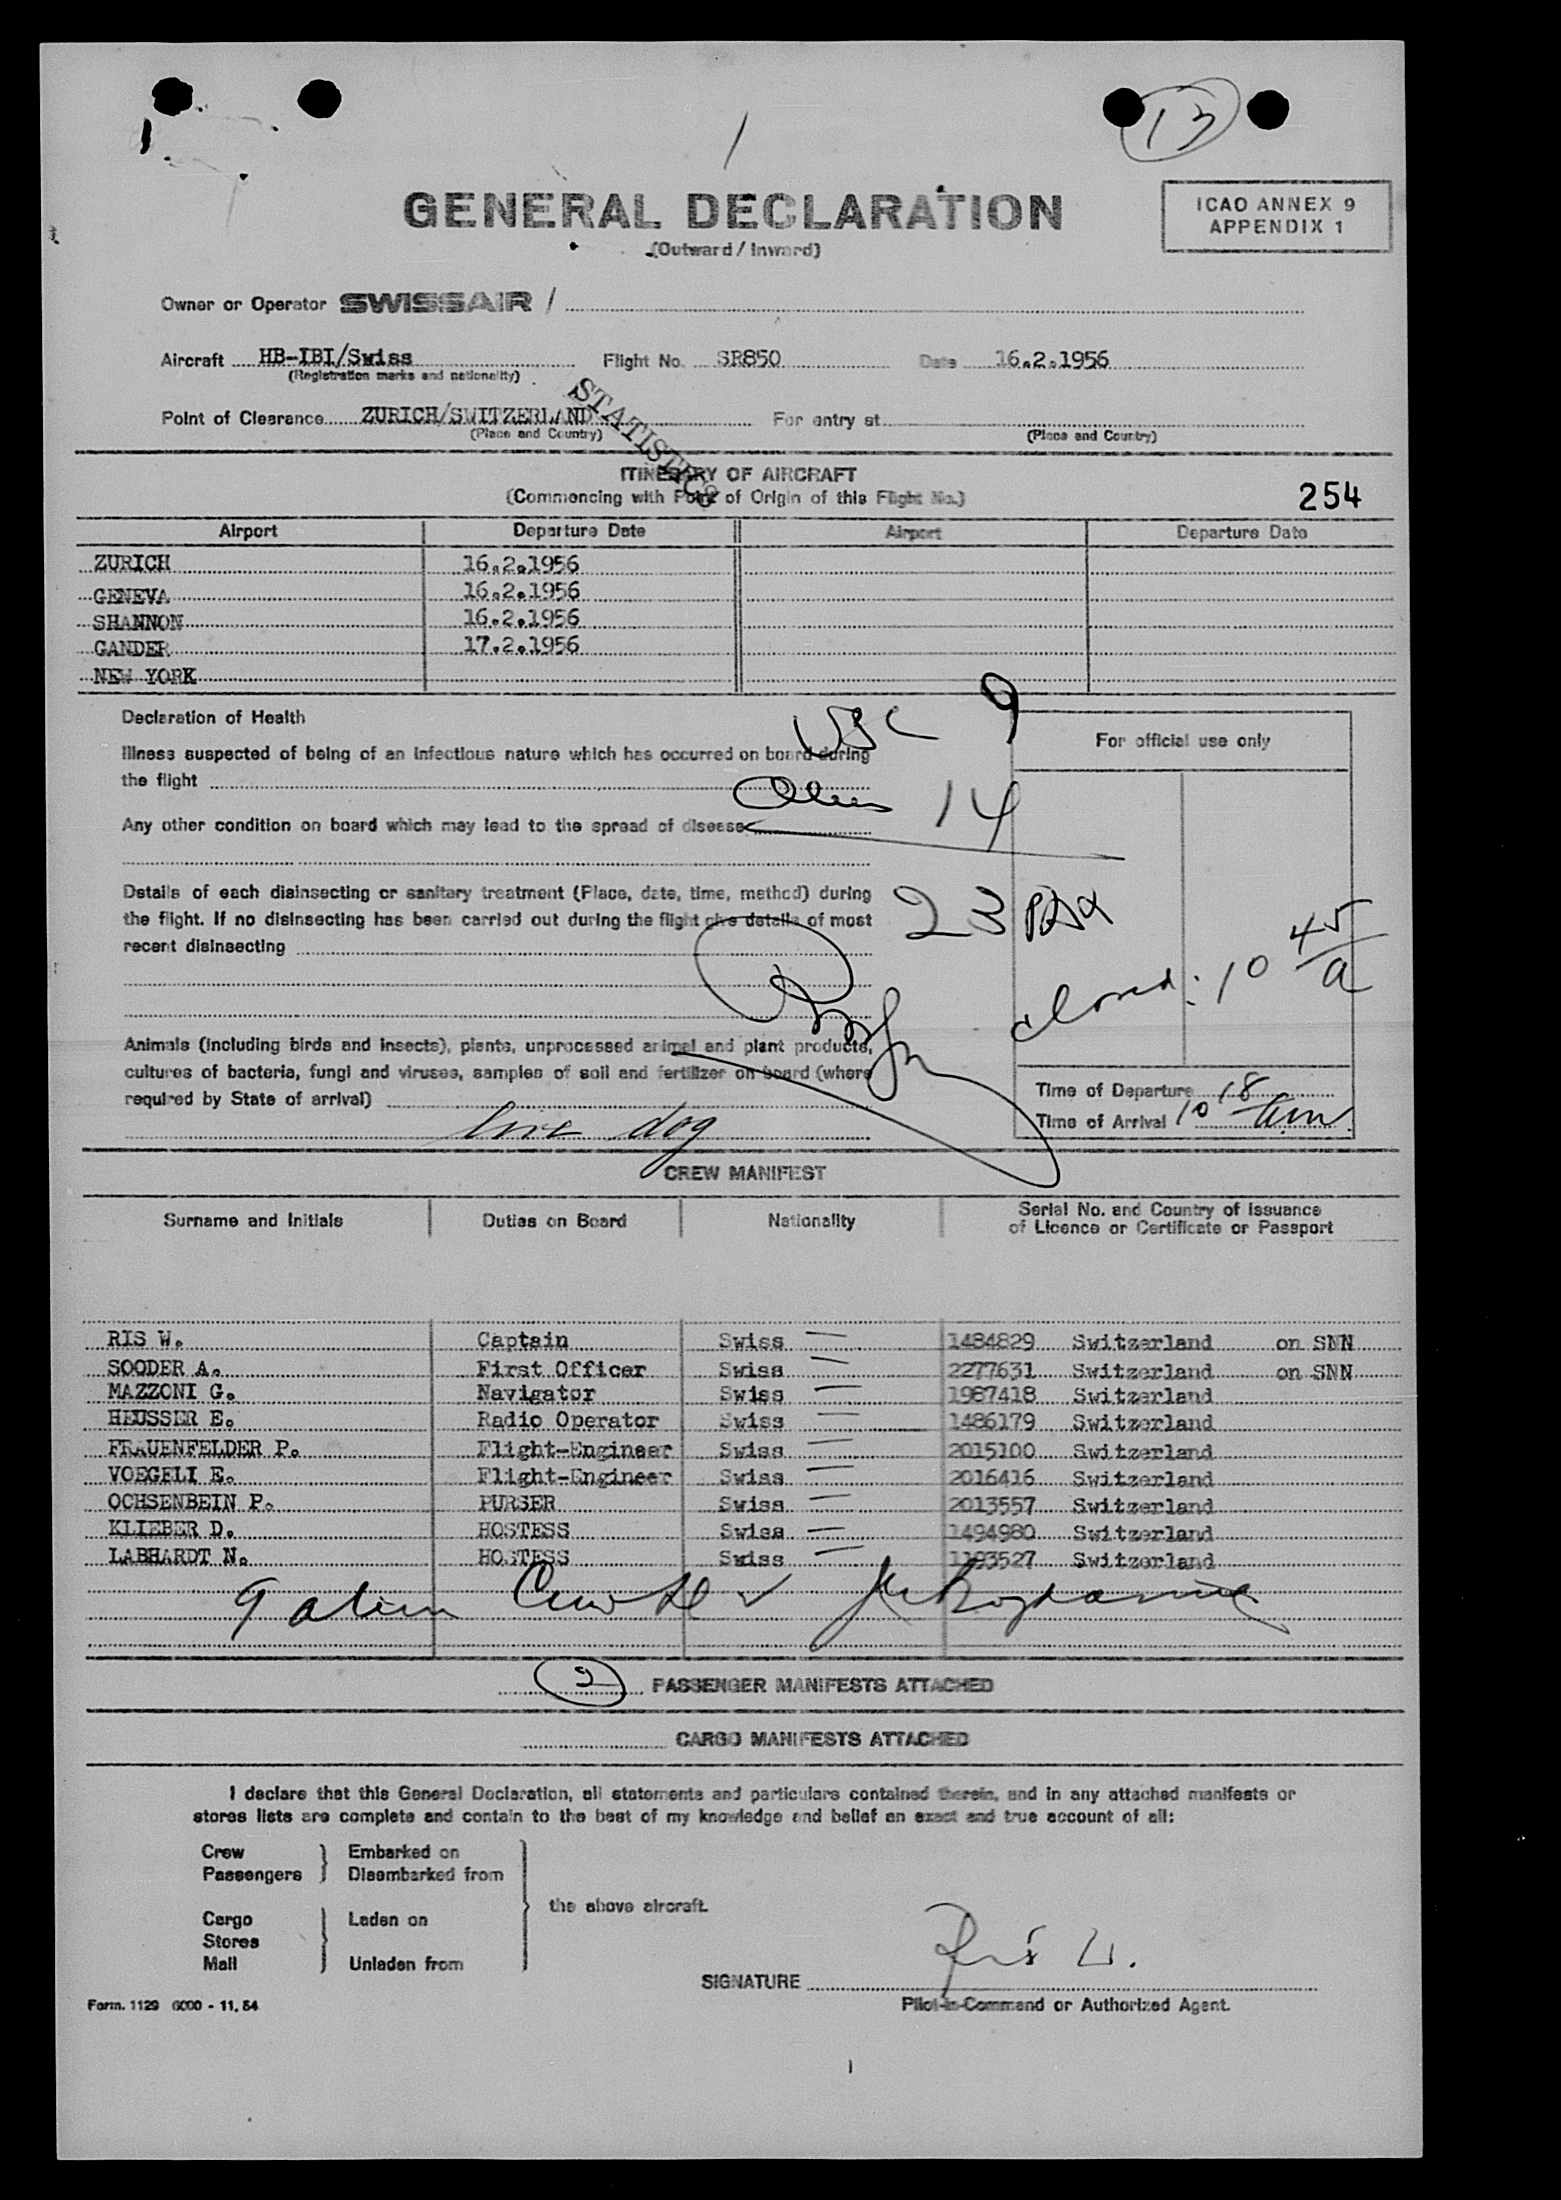 13
GENERAL DECLARATION
(Outward / Inward)
ICAO ANNEX 9
APPENDIX 1
Owner or Operator SWISSAIR /
Aircraft HB-IBI/Swiss Flight No. SR850 Date 16.2.1956
(Registration marks and nationality)
Point of Clearance ZURICH/SWITZERLAND For entry at
(Place and Country) (Place and Country)
STATISTICS
ITINERARY OF AIRCRAFT
(Commencing with Point of Origin of this Flight No.)
254
Airport Departure Date Airport Departure Date
ZURICH 16.2.1956
GENEVA 16.2.1956
SHANNON 16.2.1956
GANDER 17.2.1956
NEW YORK
Declaration of Health
USC 9
For official use only
Illness suspected of being of an infectious nature which has occurred on board during
the flight
Alien 14
Any other condition on board which may lead to the spread of disease
Details of each disinsecting or sanitary treatment (Place, date, time, method) during
the flight. If no disinsecting has been carried out during the flight give details of most
recent disinsecting
23 pax
closed: 10 45/a
Animals (including birds and insects), plants, unprocessed animal and plant products,
cultures of bacteria, fungi and viruses, samples of soil and fertilizer on board (where
required by State of arrival)
live dog
Time of Departure
Time of Arrival 10 18 am
CREW MANIFEST
Surname and Initials Duties on Board Nationality Serial No. and Country of Issuance
of Licence or Certificate or Passport
RIS W. Captain Swiss 1484829 Switzerland on SNN
SOODER A. First Officer Swiss 2277631 Switzerland on SNN
MAZZONI G. Navigator Swiss 1987418 Switzerland
HEUSSER E. Radio Operator Swiss 1486179 Switzerland
FRAUENFELDER P. Flight-Engineer Swiss 2015100 Switzerland
VOEGELI E. Flight-Engineer Swiss 2016416 Switzerland
OCHSENBEIN P. PURSER Swiss 2013557 Switzerland
KLIEBER D. HOSTESS Swiss 1494980 Switzerland
LABHARDT N. HOSTESS Swiss 1193527 Switzerland
9 alien Crew
2 PASSENGER MANIFESTS ATTACHED
CARGO MANIFESTS ATTACHED
I declare that this General Declaration, all statements and particulars contained therein, and in any attached manifests or
stores lists are complete and contain to the best of my knowledge and belief an exact and true account of all:
Crew Embarked on
Passengers Disembarked from
the above aircraft.
Cargo Laden on
Stores
Mail Unladen from
Ris W.
SIGNATURE
Form. 1129 6000 - 11, 54
Pilot-in-Command or Authorized Agent.